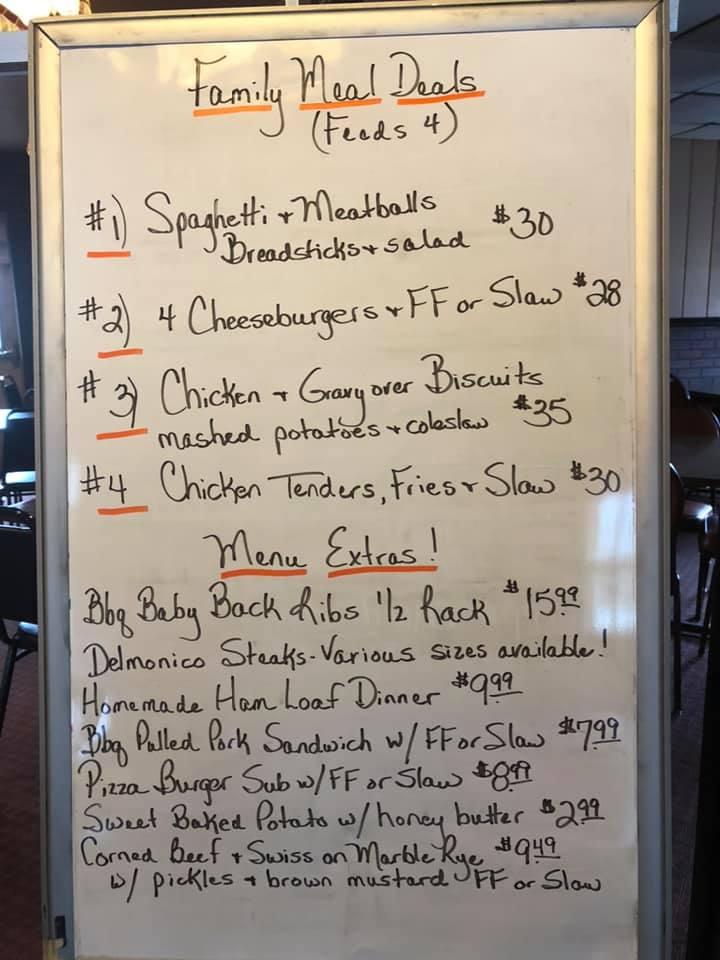 Family Meal Deals
(Feeds 4)
#1) Spaghetti + Meatballs
Breadsticks + salad $30
#2) 4 Cheeseburgers + FF or Slaw $28
#3) Chicken + Gravy over Biscuits
mashed potatoes + coleslaw $35
#4 Chicken Tenders, Fries + Slaw $30
Menu Extras!
Bbq Baby Back Ribs 1/2 Rack $15.99
Delmonico Steaks - Various sizes available!
Homemade Ham Loaf Dinner $9.99
Bbq Pulled Pork Sandwich w/ FF or Slaw $7.99
Pizza Burger Sub w/ FF or Slaw $8.99
Sweet Baked Potato w/ honey butter $2.99
Corned Beef + Swiss on Marble Rye $9.49
w/ pickles + brown mustard FF or Slaw